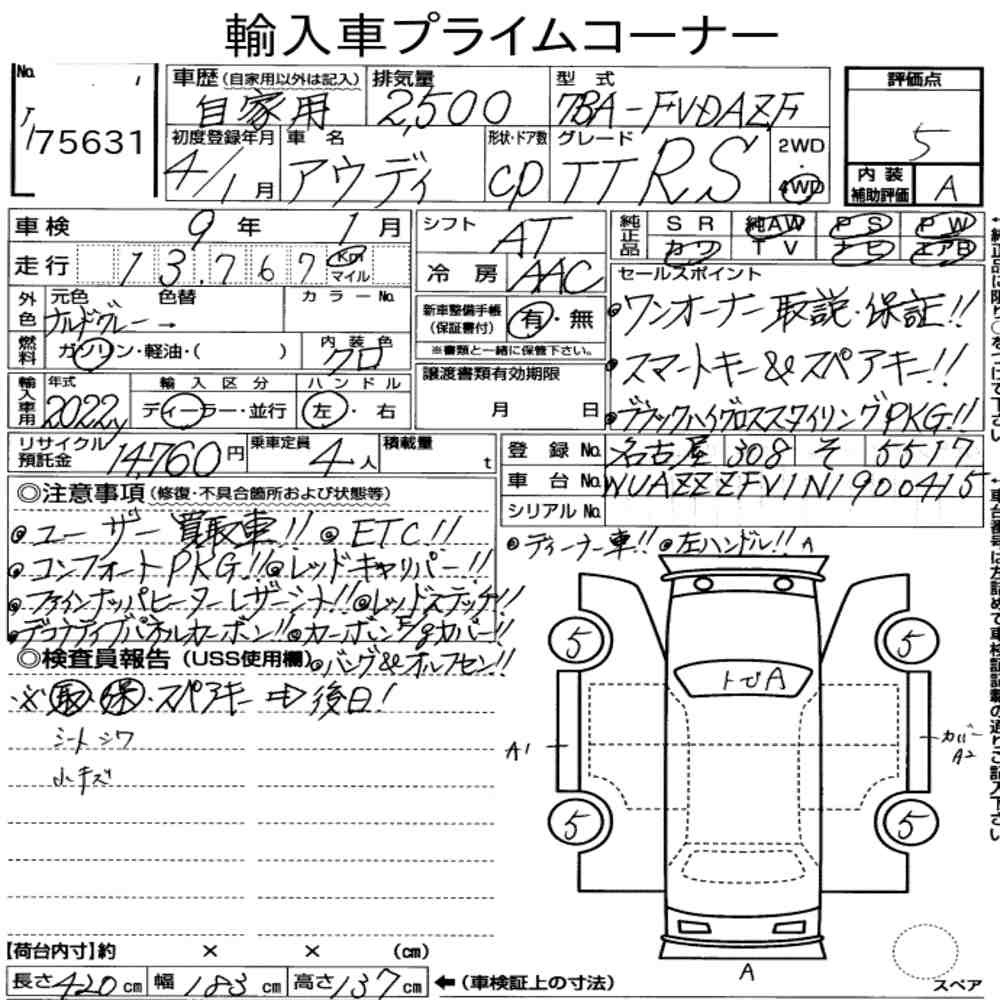 輸入車プライムコーナー
No.
75631
車歴(自家用以外は記入)
自家用
排気量
2,500
型 式
7BA-FVDAZF
評価点
5
内装補助評価
A
初度登録年月
4/1月
車 名
アウディ
形状・ドア数
CP
グレード
TTRS
2WD
・
4WD
車検
9年 1月
走行
13,767
Km
マイル
シフト
AT
冷 房
AAC
純正品
SR 純AW PS PW
カワ TV ナビ エアB
外色
元色 色替
ナルドグレー→
カラーNo.
燃料
ガソリン・軽油・( )
内装色
クロ
新車整備手帳
(保証書付)
有・無
※書類と一緒に保管下さい。
セールスポイント
●ワンオーナー 取説・保証!!
●スマートキー&スペアキー!!
●ブラックハイグロススタイリングPKG!!
輸入車用
年式
2022y
輸入区分
ディーラー・並行
ハンドル
左・右
譲渡書類有効期限
月 日
リサイクル預託金
14,760円
乗車定員
4人
積載量
t
登録No.
名古屋 308 そ 5517
車台No.
WUAZZZFV1N1900415
シリアルNo.
◎注意事項(修復・不具合箇所および状態等)
●ユーザー買取車!! ●ETC!!
●コンフォートPKG!! ●レッドキャリパー!!
●ファインナッパヒーターレザーシート!! ●レッドステッチ!!
●デコラティブパネルカーボン!! ●カーボンE/gカバー!!
●バング&オルフセン!!
●ディーラー車!! ●左ハンドル!!
◎検査員報告(USS使用欄)
※取・保・スペアキー⇒後日!
シートシワ
小キズ
A
5
5
トビA
A1
カバー
A2
5
5
A
スペア
【荷台内寸】約 × × (cm)
長さ420cm 幅183cm 高さ137cm
←(車検証上の寸法)
↑純正品に限り○をつけて下さい
↑車台番号は左詰めで車検証記載の通りご記入下さい